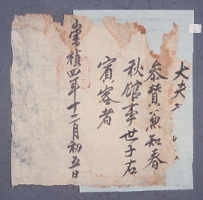 大夫
參贊兼知春
秋館事世子右
賓客者
崇禎四年十二月初五日